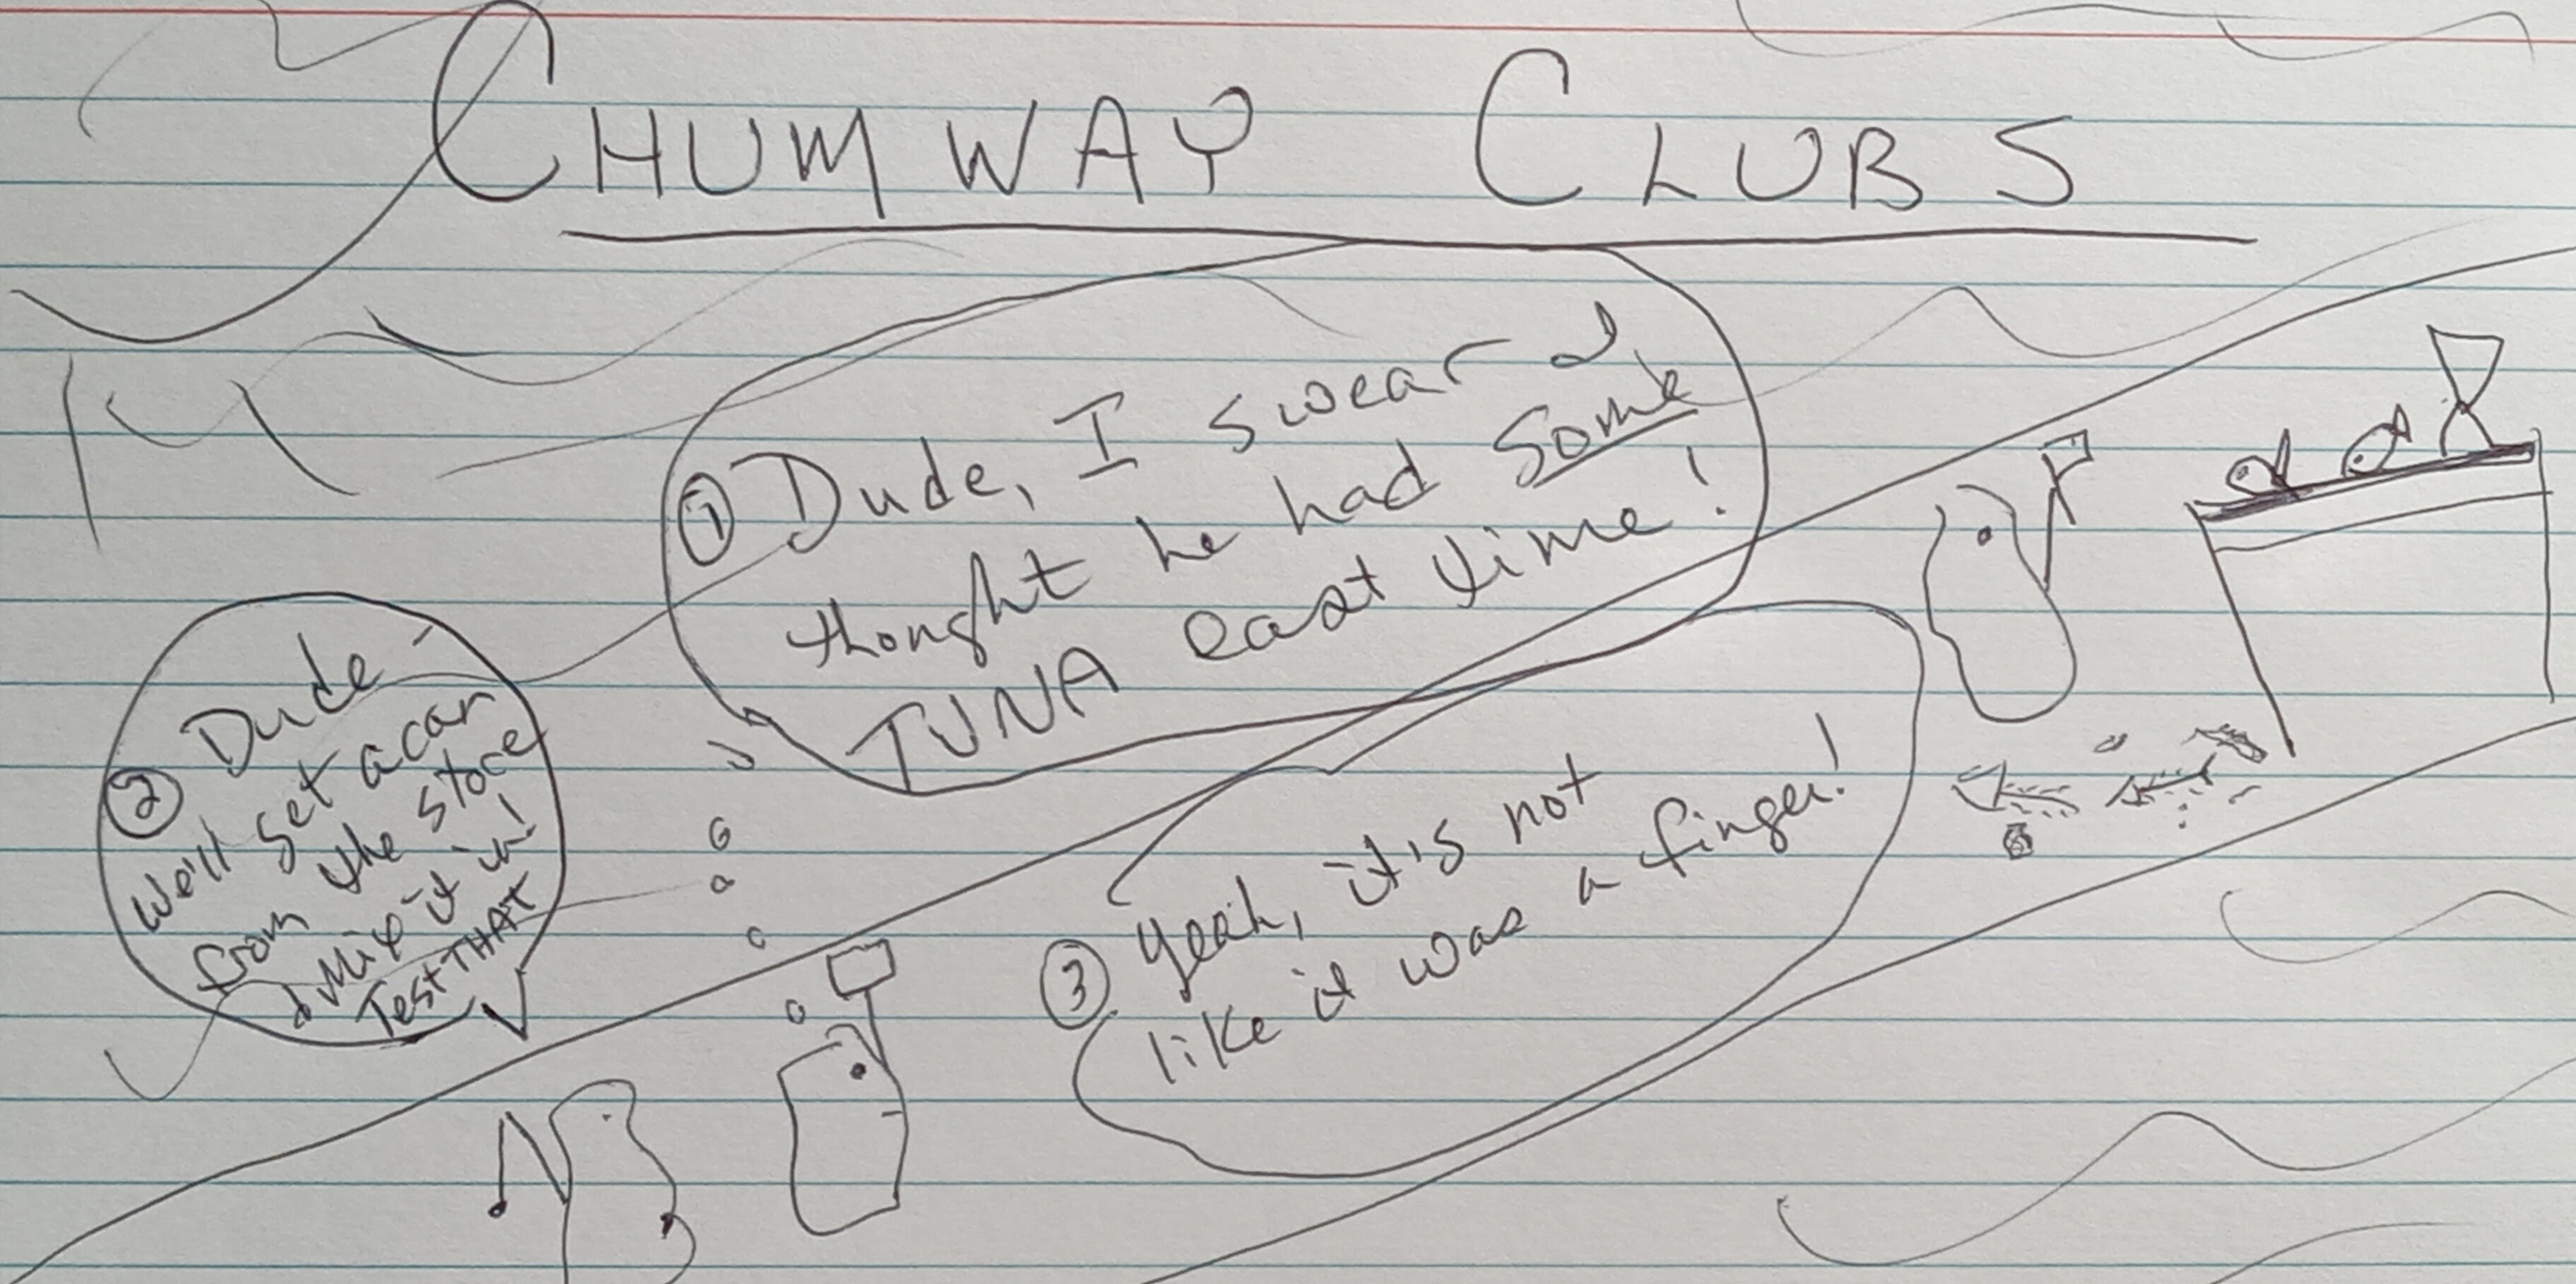 CHUMWAY CLUBS
① Dude, I swear I
thought he had some
TUNA last time!
② Dude -
We'll get a can
from the store
& mix it in!
Test THAT
③ Yeah, it's not
like it was a finger!